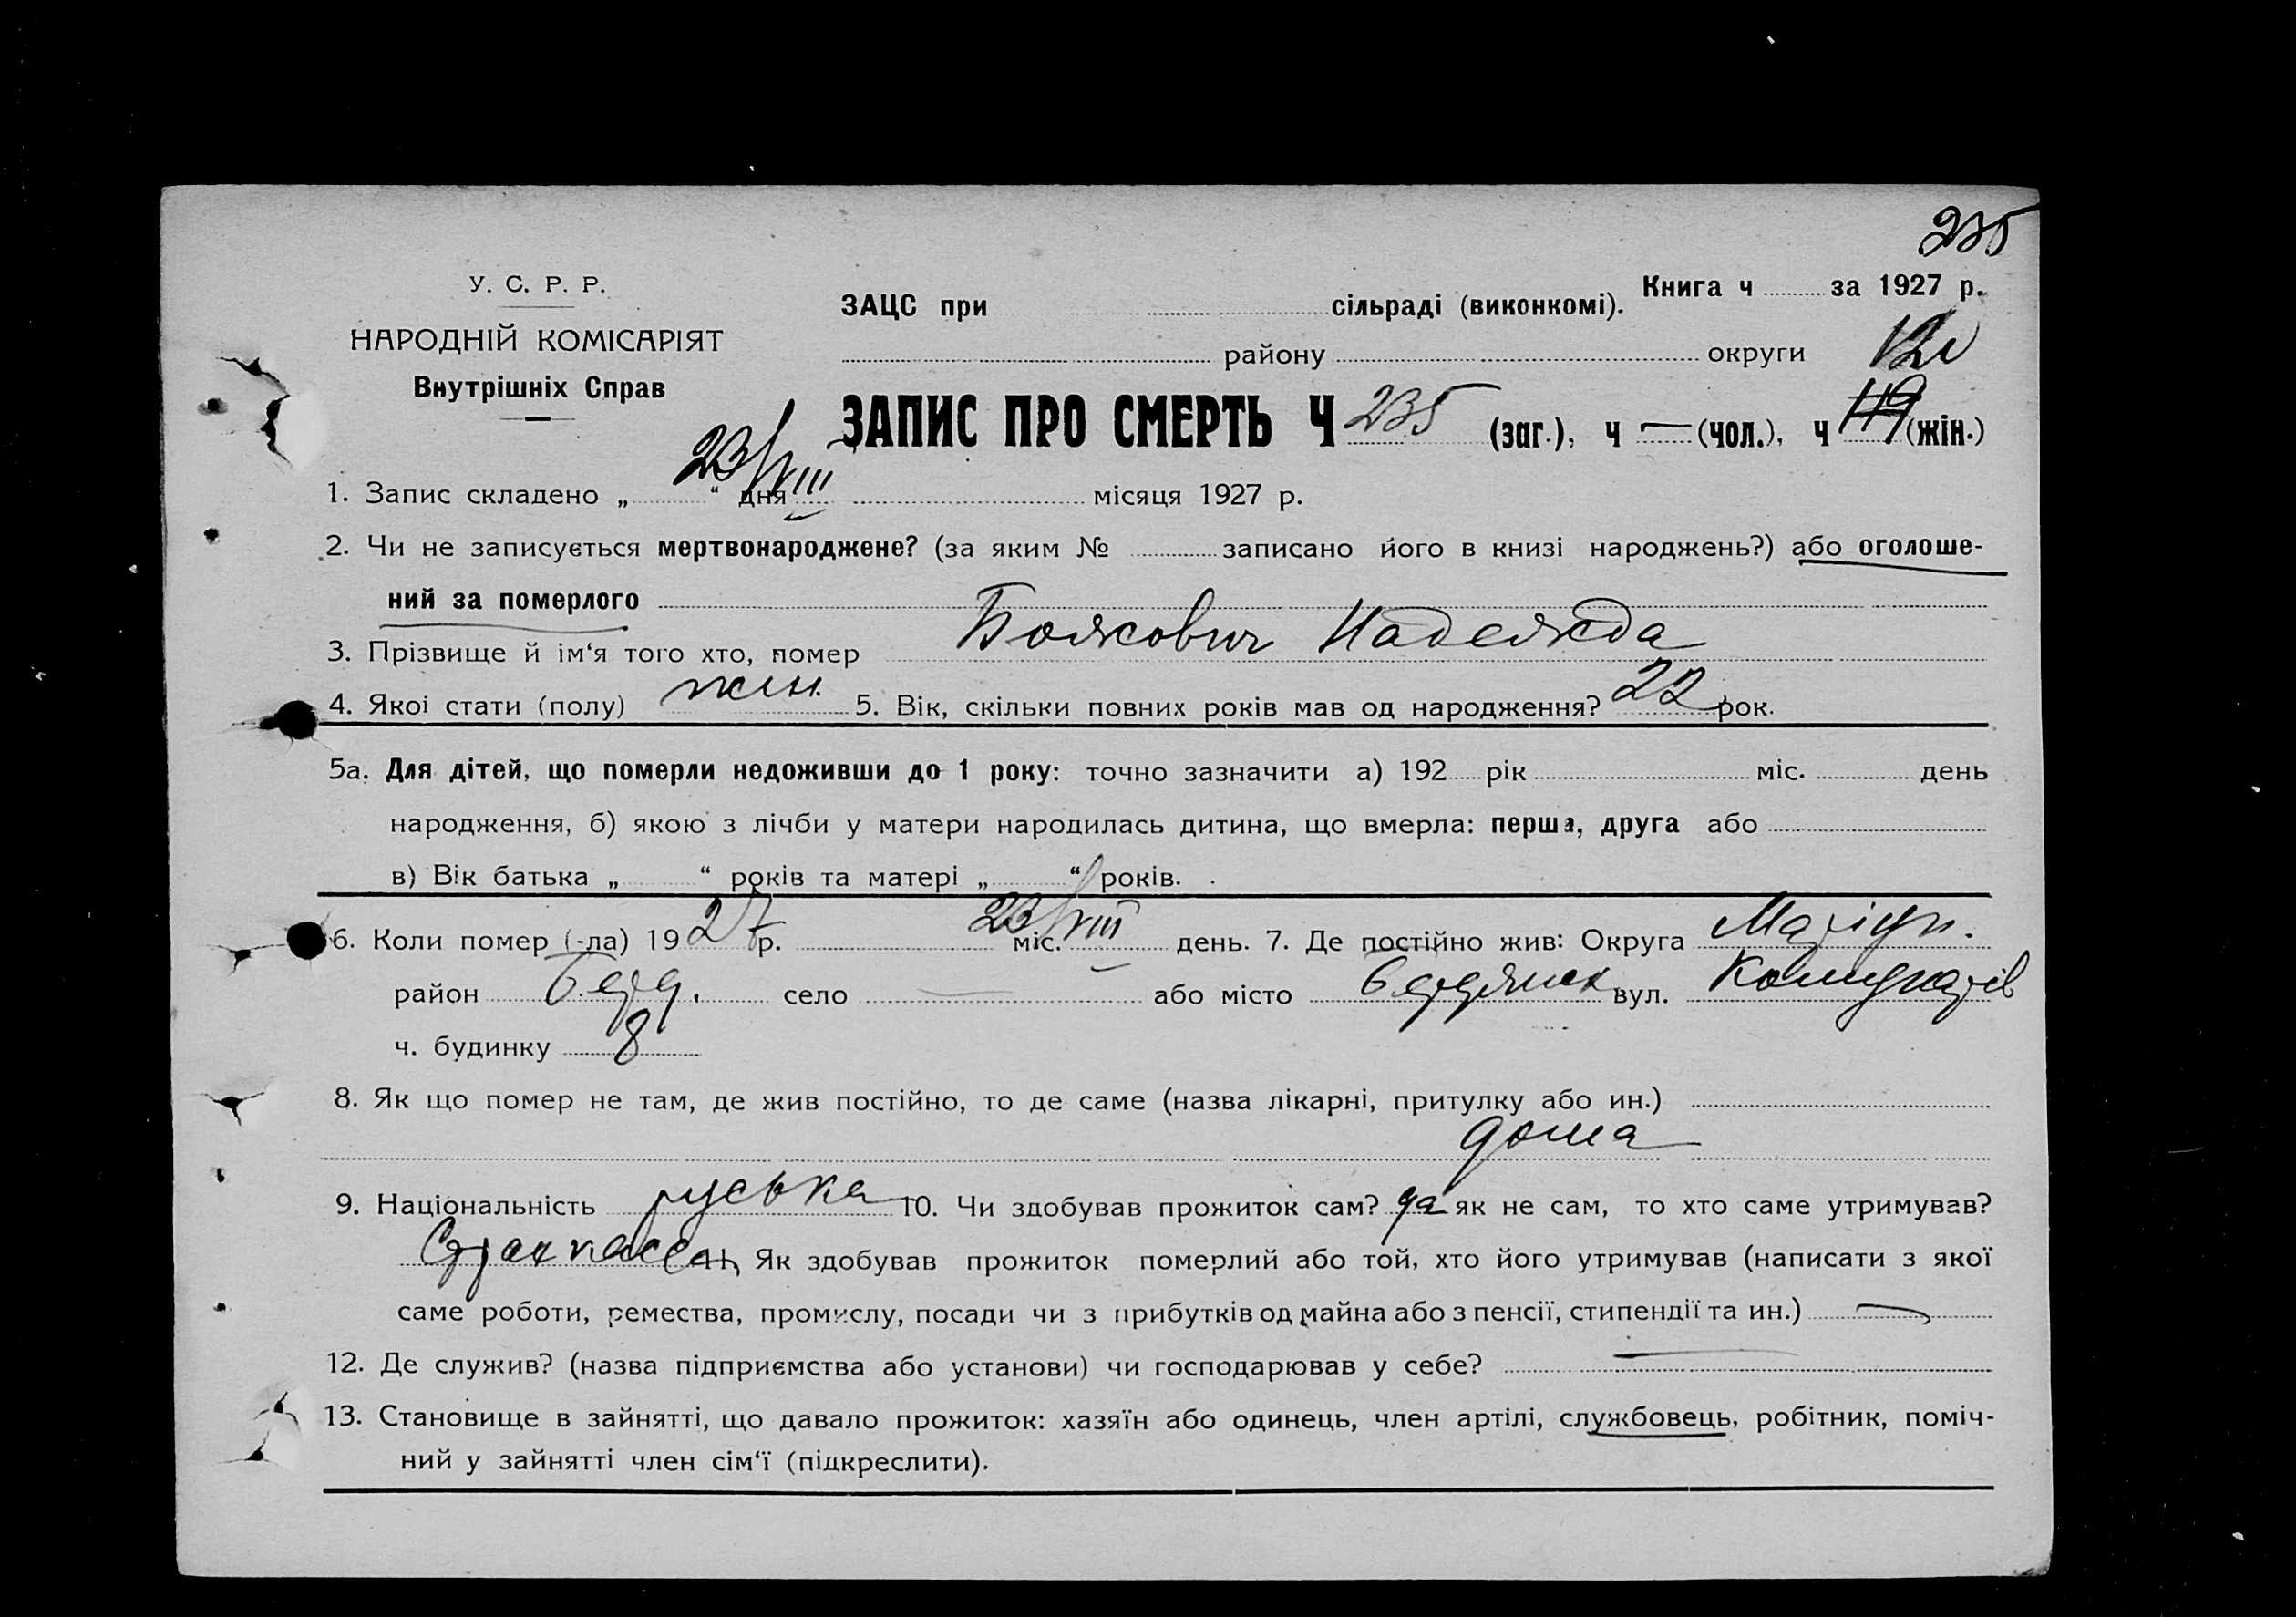 235
У. С. Р. Р.
НАРОДНІЙ КОМІСАРІЯТ
Внутрішніх Справ
Книга ч за 1927 р.
ЗАЦС при сільраді (виконкомі).
району округи 120
ЗАПИС ПРО СМЕРТЬ Ч 235 (заг.), ч — (чол.), ч 119 (жін.)
1. Запис складено „ 23/VIII “ дня місяця 1927 р.
2. Чи не записується мертвонароджене? (за яким № записано його в книзі народжень?) або оголоше-
ний за померлого
3. Прізвище й ім‘я того хто, помер Божович Надежда
4. Якої стати (полу) жін. 5. Вік, скільки повних років мав од народження? 22 рок.
5а. Для дітей, що померли недоживши до 1 року: точно зазначити а) 192 рік міс. день
народження, б) якою з лічби у матери народилась дитина, що вмерла: перша, друга або
в) Вік батька „ “ років та матері „ “ років.
6. Коли помер (-ла) 1927 р. 23/VIII міс. день. 7. Де постійно жив: Округа Маріуп.
район Берд. село — або місто Бердянськ вул. Комунарів
ч. будинку 8
8. Як що помер не там, де жив постійно, то де саме (назва лікарні, притулку або ин.)
дома
9. Національність руська 10. Чи здобував прожиток сам? да як не сам, то хто саме утримував?
Страхкасса 11. Як здобував прожиток померлий або той, хто його утримував (написати з якої
саме роботи, ремества, промислу, посади чи з прибутків од майна або з пенсії, стипендії та ин.) —
12. Де служив? (назва підприємства або установи) чи господарював у себе? —
13. Становище в зайнятті, що давало прожиток: хазяїн або одинець, член артілі, службовець, робітник, поміч-
ний у зайнятті член сім‘ї (підкреслити).